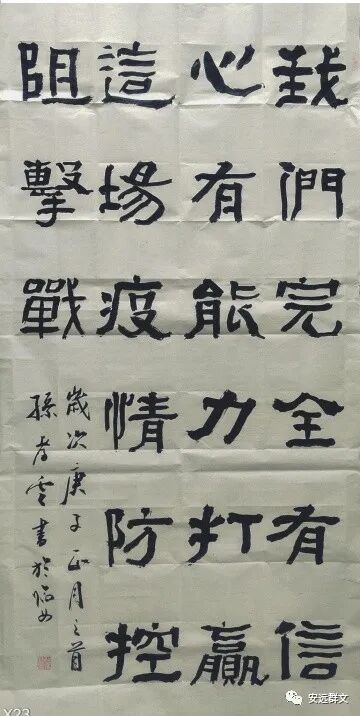 我們完全有信
心有能力打贏
這場疫情防控
阻擊戰
歲次庚子正月之首
孫孝雲書於臨安
安远群文
X23